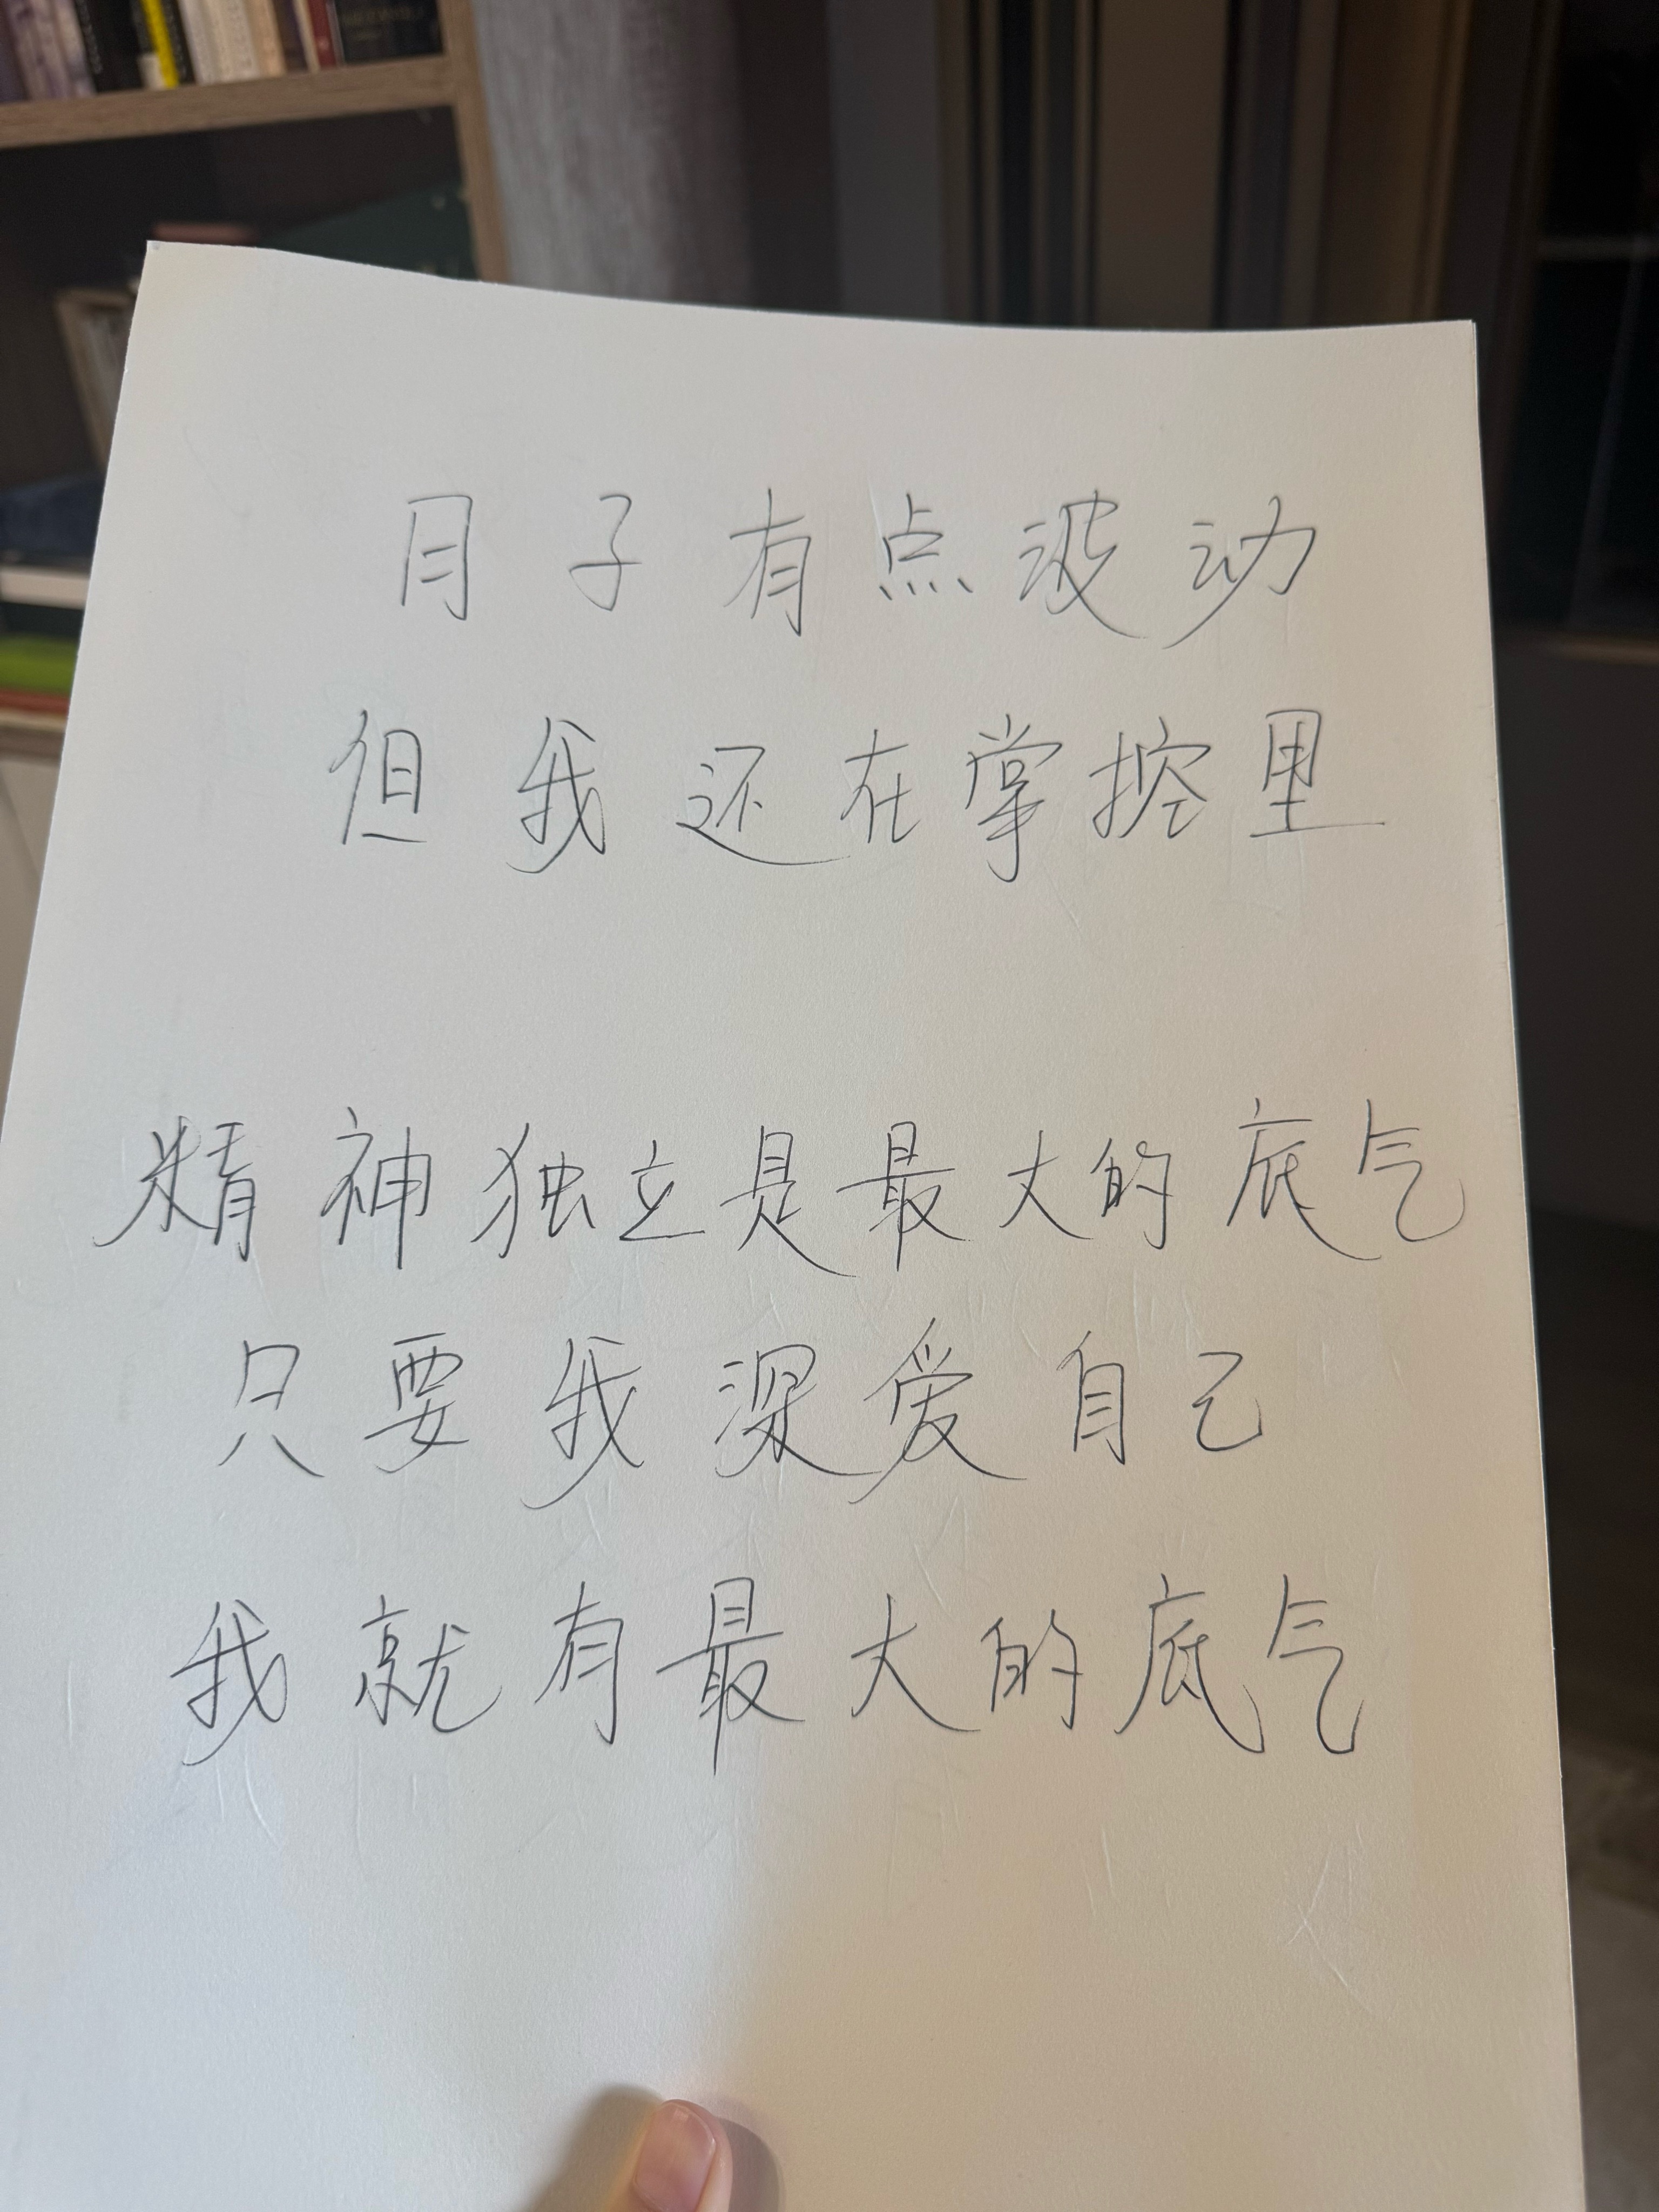 月子有点波动
但我还在掌控里
精神独立是最大的底气
只要我深爱自己
我就有最大的底气